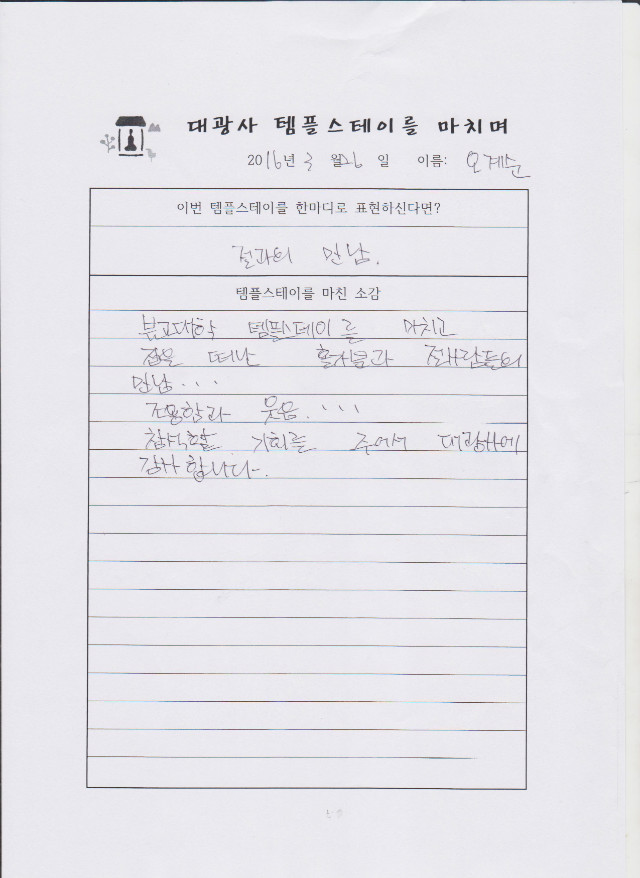 대광사 템플스테이를 마치며
2016년 3 월 26 일 이름: 오계순
이번 템플스테이를 한마디로 표현하신다면?
절과의 만남.
템플스테이를 마친 소감
불교대학 템플스테이를 마치고
집을 떠난 홀가분과 절사람들의
만남...
조용함과 웃음....
참석할 기회를 주에서 대광사에
감사합니다.